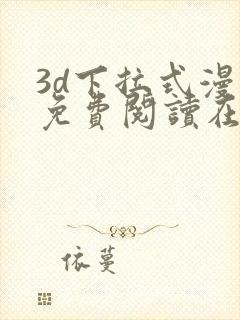 3d下拉式漫
免費閱讀在
依蔓